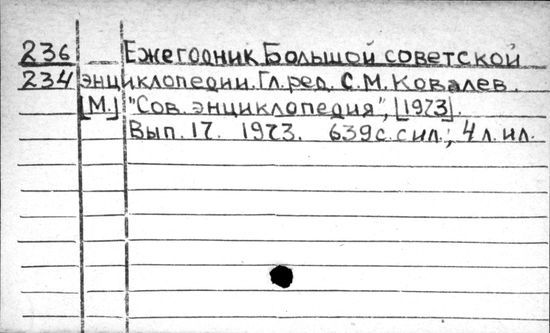 236 Ежегодник Большой советской
234 энциклопедии. Гл. ред. С. М. Ковалев.
[М.] "Сов. энциклопедия", [1973].
Вып. 17. 1973. 639 с. с ил.; 4 л. ил.